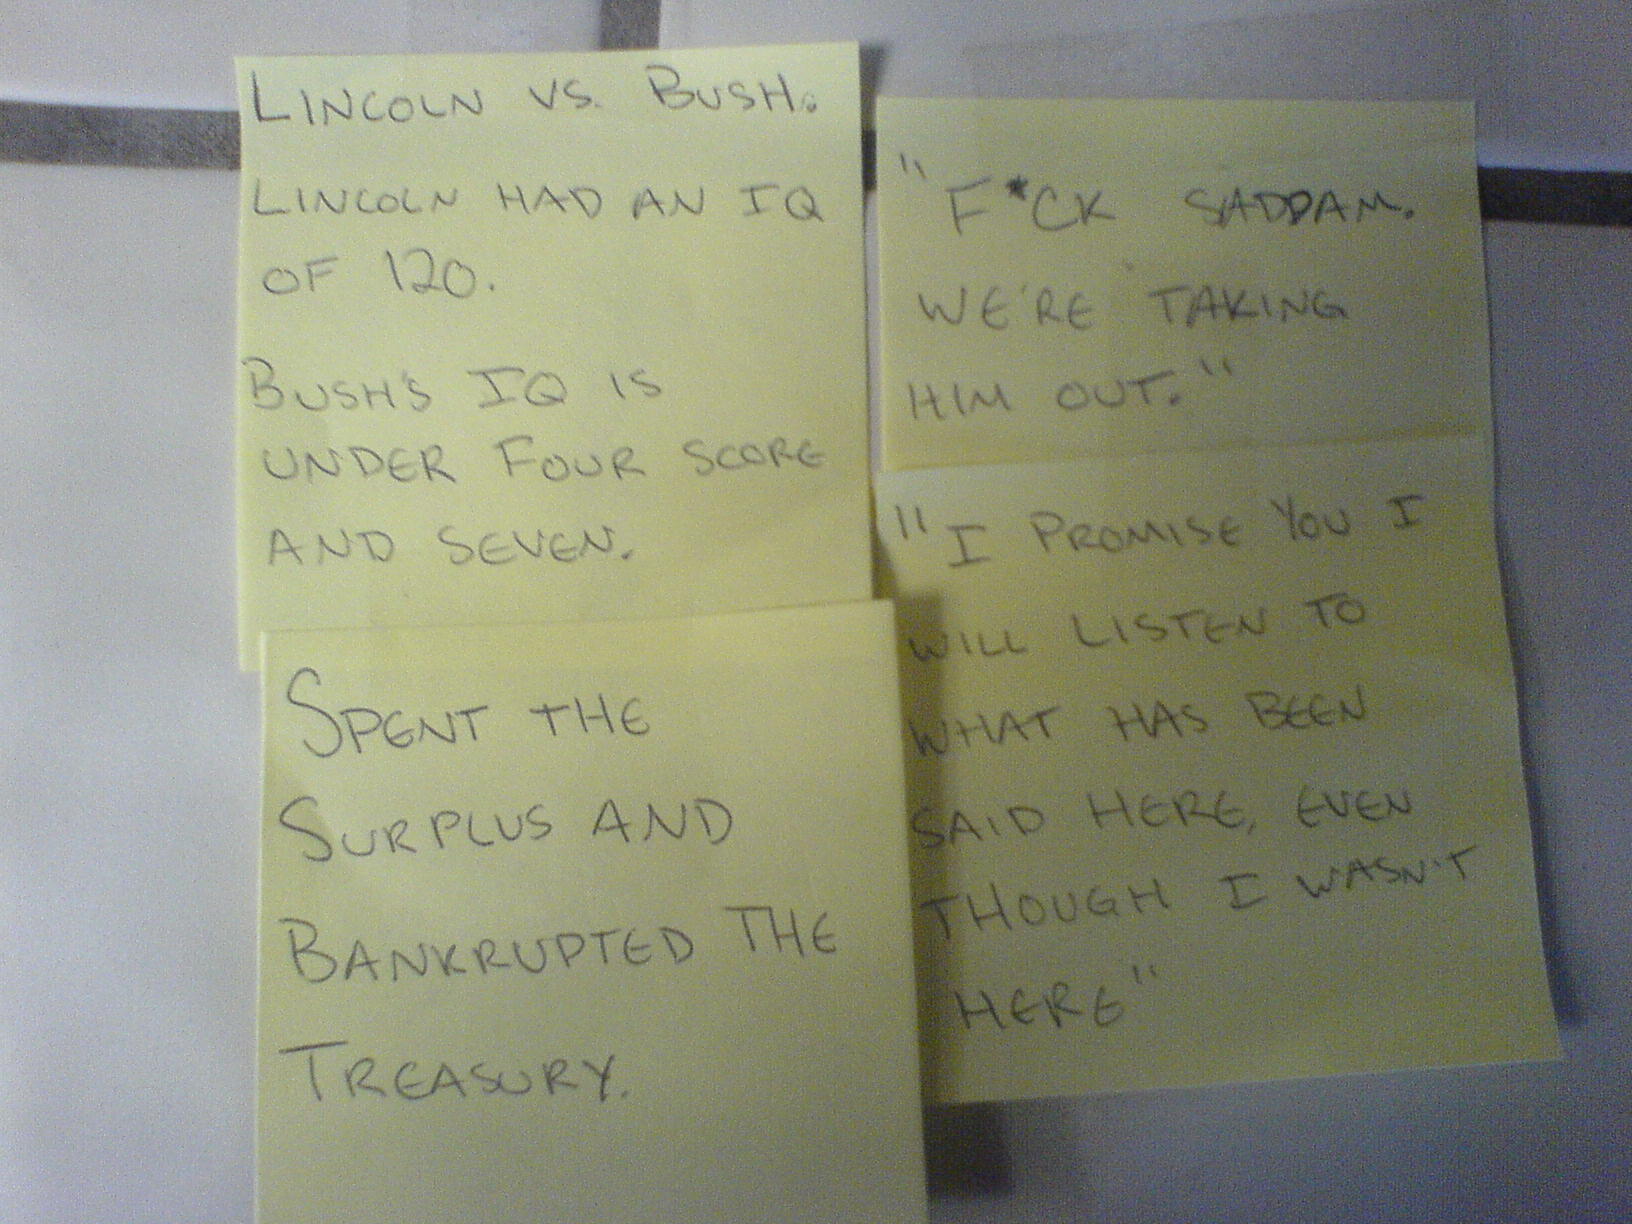 LINCOLN VS. BUSH.
LINCOLN HAD AN IQ
OF 120.
BUSH'S IQ IS
UNDER FOUR SCORE
AND SEVEN.
SPENT THE
SURPLUS AND
BANKRUPTED THE
TREASURY.
"F*CK SADDAM.
WE'RE TAKING
HIM OUT."
"I PROMISE YOU I
WILL LISTEN TO
WHAT HAS BEEN
SAID HERE, EVEN
THOUGH I WASN'T
HERE"